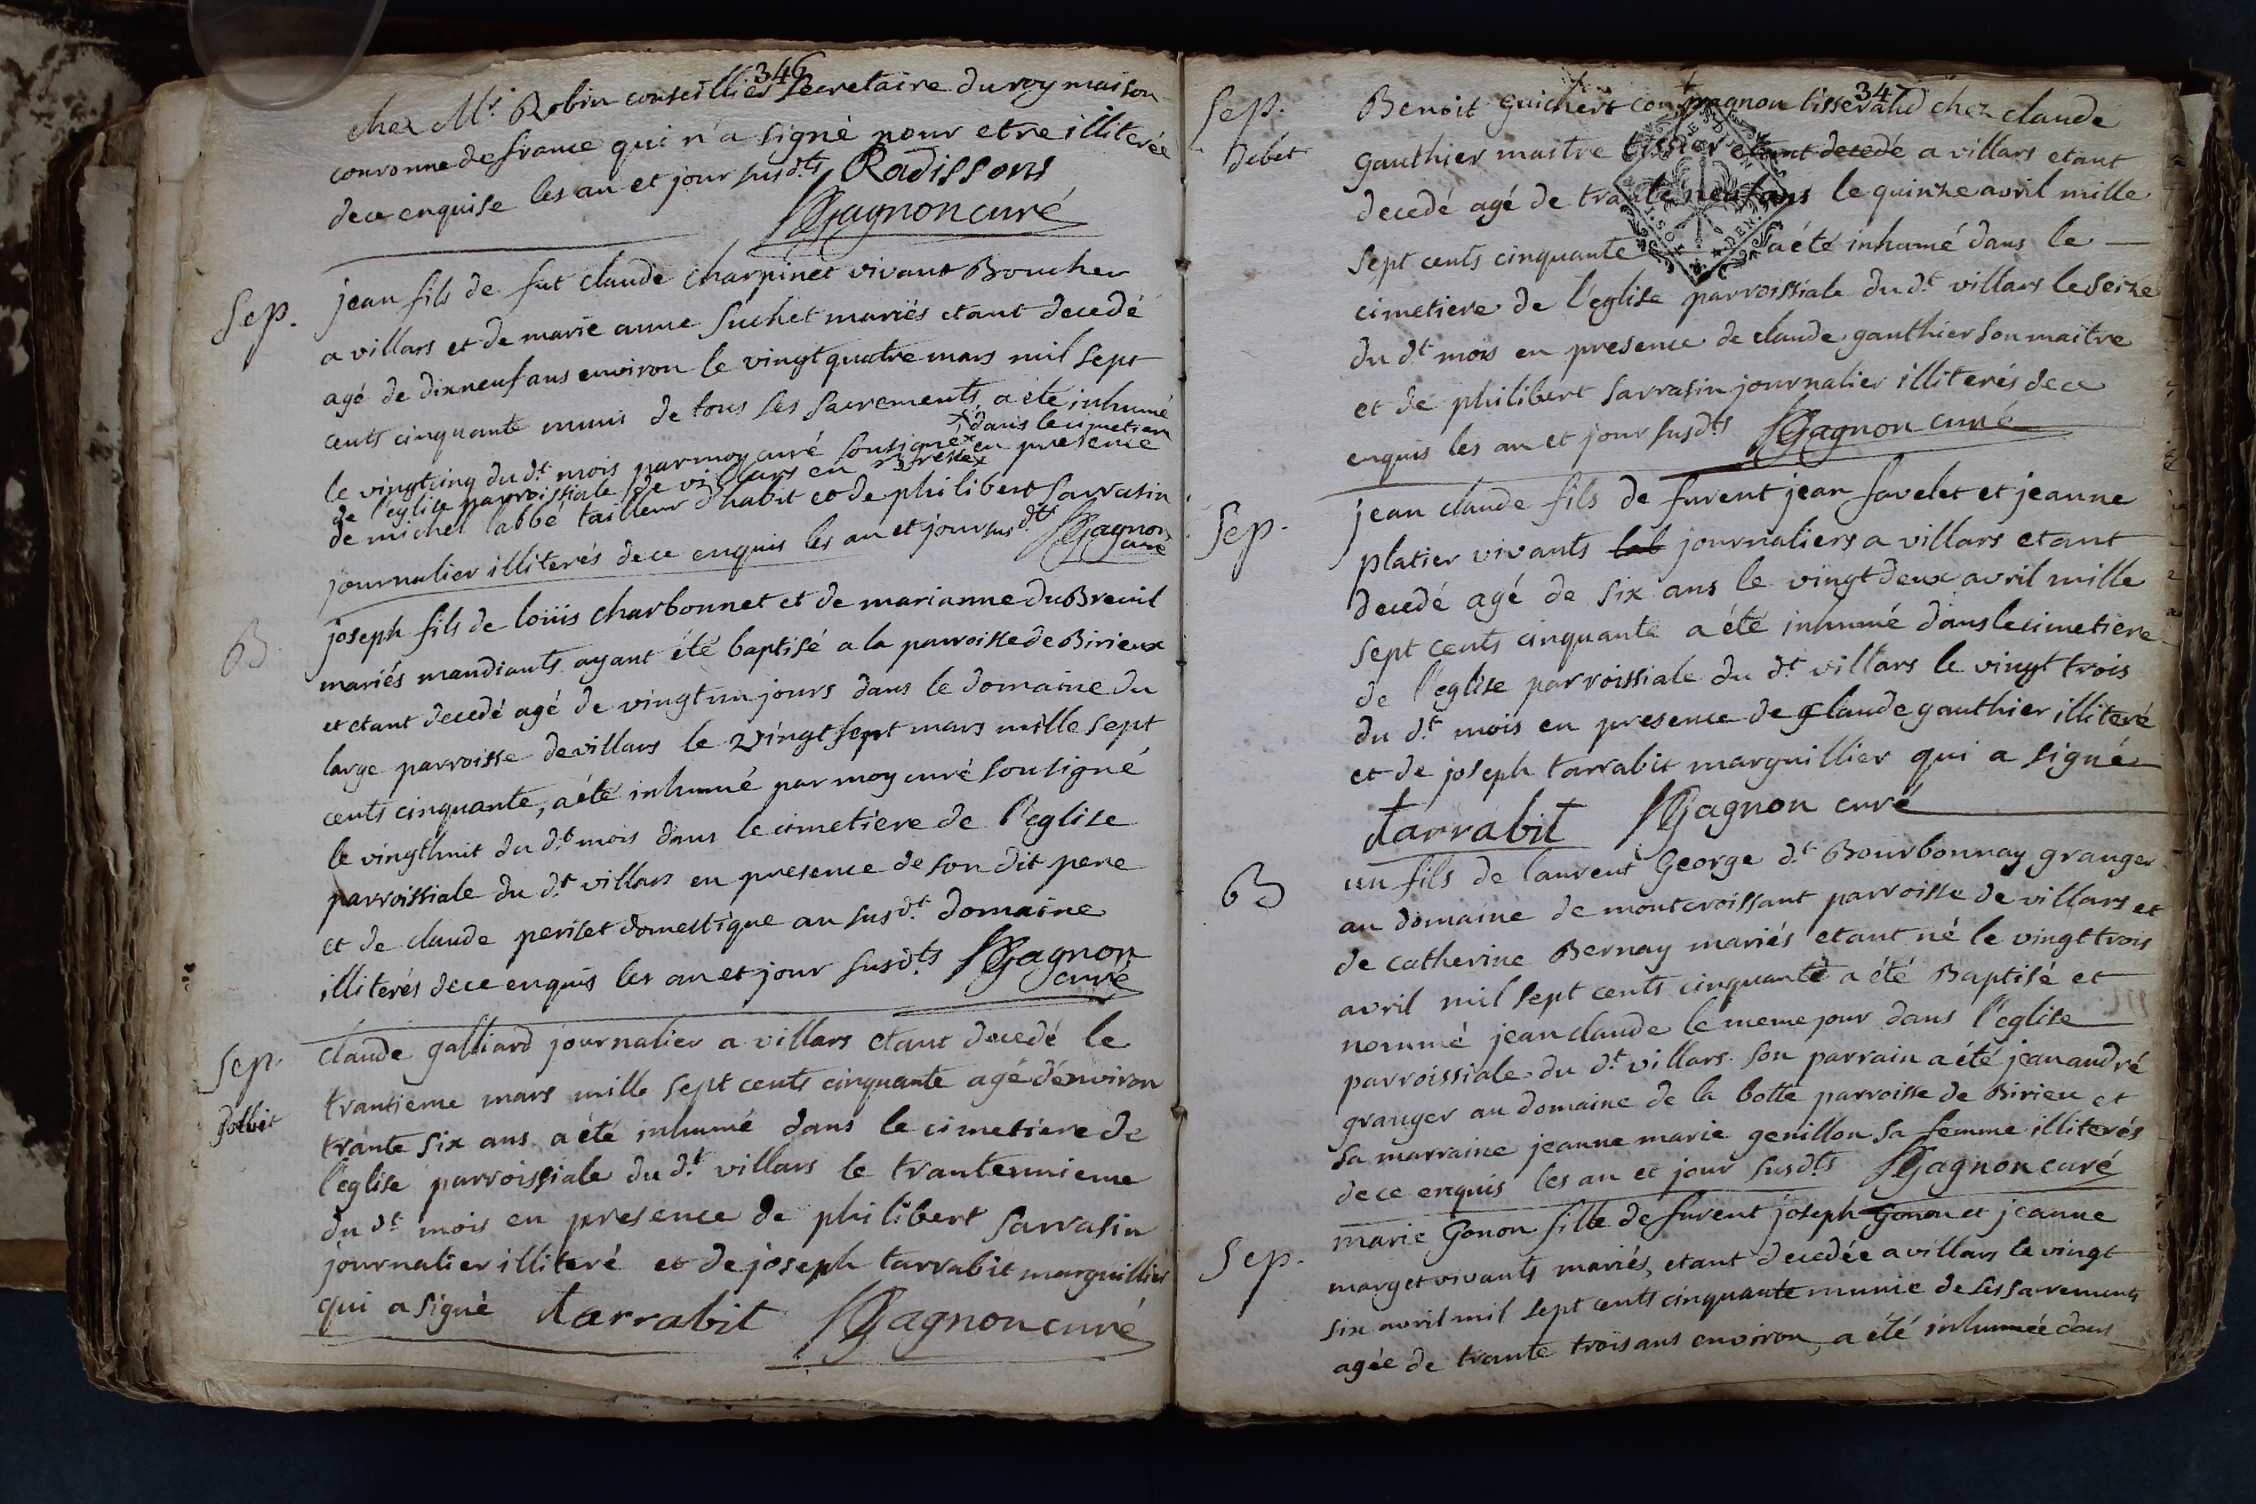 346
chez Mr. Robin conseillier secretaire du roy maison
couronne de france qui n'a signé pour etre illiterée
de ce enquise les an et jour susdts Radissons
Gagnon curé
Sep.
jean fils de fut claude charpinet vivant Boucher
a villars et de marie anne suchet mariés etant decedé
agé de dixneuf ans environ le vingtquatre mars mil sept
cents cinquante muni de tous ses sacrements, a été inhumé
x dans le cimetiere
le vingtcinq du dt. mois par moy curé sousigné x en presence
de l'eglise parroissiale de villars en
de michel labbé tailleur d'habit et de philibert sarrasin
journalier illiterés de ce enquis les an et jour susdts Gagnon
curé
B
joseph fils de loüis charbonnet et de marianne duBreuil
mariés mandiants ayant été baptisé a la parroisse de Birieux
et etant decedé agé de vingt un jours dans le domaine du
large parroisse de villars le vingt sept mars mille sept
cents cinquante, a été inhumé par moy curé sousigné
le vingthuit du dt. mois dans le cimetiere de l'eglise
parroissiale du dt villars en presence de son dit pere
et de claude periset domestique au susdt. domaine
illiterés de ce enquis les an et jour susdts Gagnon
curé
Sep.
debit
claude galliard journalier a villars etant decedé le
trantieme mars mille sept cents cinquante agé d'environ
trante six ans a été inhumé dans le cimetiere de
l'eglise parroissiale du dt villars le tranteunieme
du dt mois en presence de philibert sarrasin
journalier illiteré et de joseph tarrabit marguillier
qui a signé tarrabit Gagnon curé
347
Sep.
debet
Benoit guichert compagnon tisserand chez claude
gauthier maitre tissier etant decedé a villars etant
decedé agé de trante neuf ans le quinze avril mille
sept cents cinquante a été inhumé dans le
cimetiere de l'eglise parroissiale du dt villars le seize
du dt mois en presence de claude gauthier son maitre
et de philibert sarrasin journalier illiterés de ce
enquis les an et jour susdts Gagnon curé
Sep.
jean claude fils de furent jean favelet et jeanne
platier vivants lab journaliers a villars etant
decedé agé de six ans le vingtdeux avril mille
sept cents cinquante a été inhumé dans le cimetiere
de l'eglise parroissiale du dt villars le vingt trois
du dt mois en presence de claude gauthier illiteré
et de joseph tarrabit marguillier qui a signé
tarrabit Gagnon curé
B
un fils de laurent George dt Bourbonnay granger
au domaine de montcroissant parroisse de villars et
de catherine Bernay mariés etant né le vingttrois
avril mil sept cents cinquante a été Baptisé et
nommé jean claude le meme jour dans l'eglise
parroissiale du dt villars. son parrain a été jean andré
granger au domaine de la botte parroisse de Birieu et
sa marraine jeanne marie genillon sa femme illiterés
de ce enquis les an et jour susdts Gagnon curé
Sep.
marie Gonon fille de furent joseph Gonon et jeanne
marget vivants mariés, etant decedée a villars le vingt
six avril mil sept cents cinquante munie de ses sacrements
agée de trante trois ans environ, a été inhumée dans